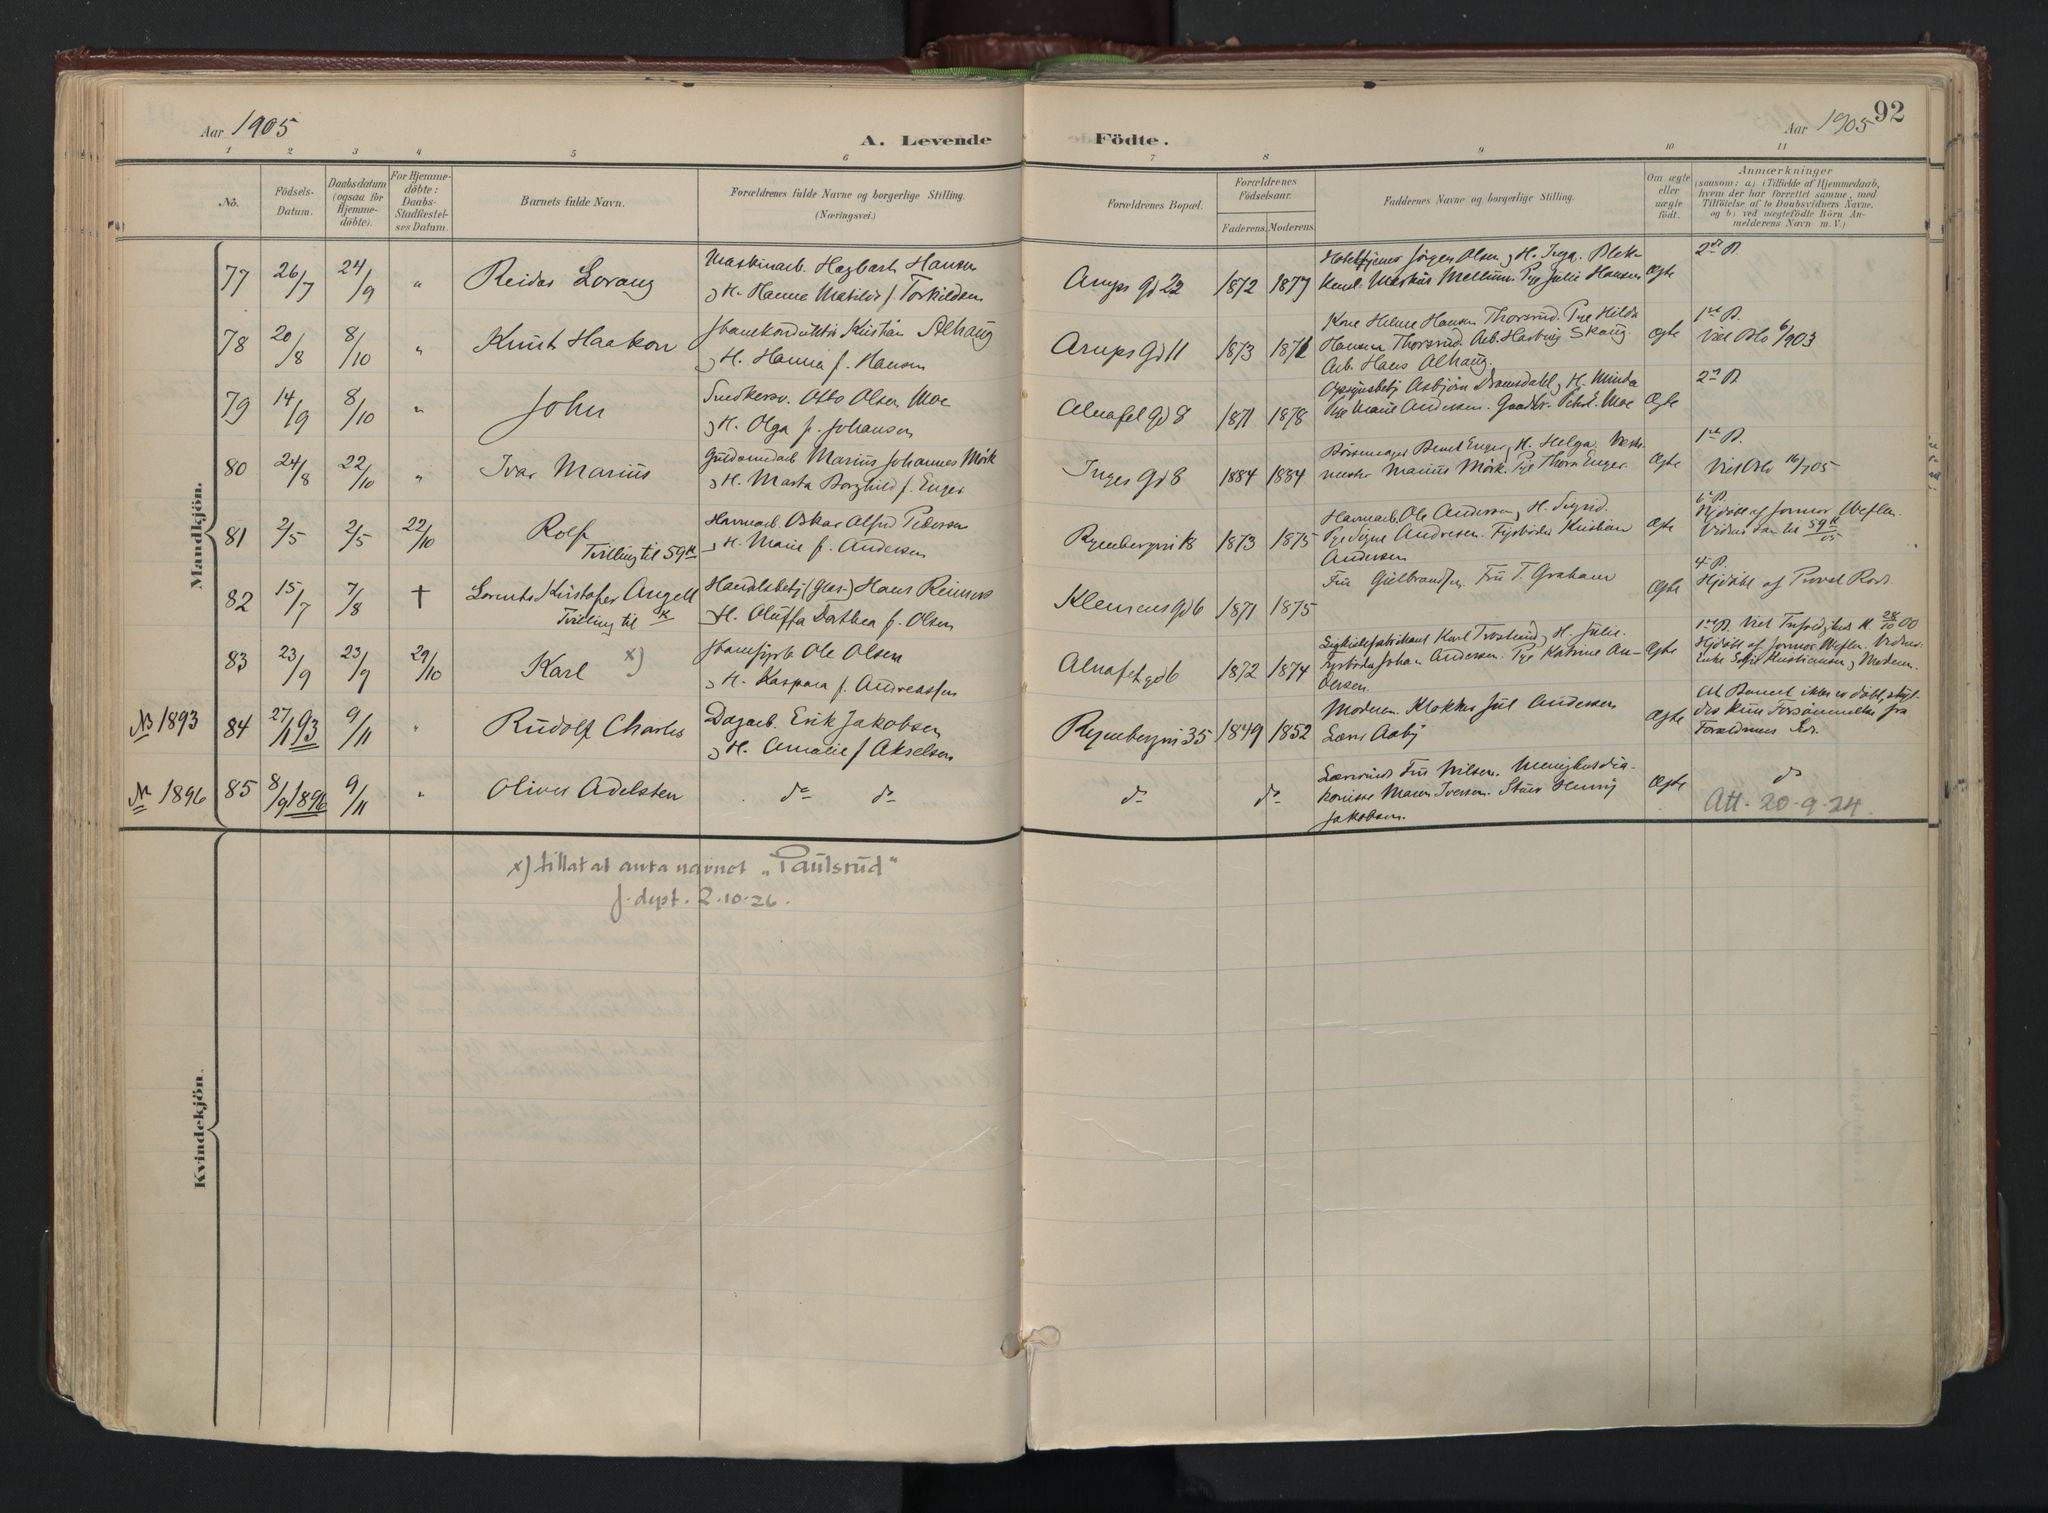 Aar 1905
A. Levende
Födte.
Aar 1905
92
1 2 3 4 5 6 7 8 9 10 11
No.
Födsels-
Datum.
Daabsdatum
(ogsaa for
Hjemme-
döbte).
For Hjemme-
döbte:
Daabs-
Stadfæstel-
ses Datum.
Barnets fulde Navn.
Forældrenes fulde Navne og borgerlige Stilling.
(Næringsvei.)
Forældrenes Bopæl.
Forældrenes
Födselsaar.
Faderens. Moderens.
Faddernes Navne og borgerlige Stilling.
Om ægte
eller
uægte
födt.
Anmærkninger
(saasom: a) i Tilfælde af Hjemmedaab,
hvem der har forrettet samme, med
Tilföielse af to Daabsvidners Navne,
og b) ved uægtefödte Börn An-
melderens Navn m. V.)
Mandkjön.
77 26/7 24/9 " Reidar Lorang
Maskinarb. Hagbart Hansen
og H. Hanne Matilde f. Torkildsen
Arups Gd 22 1872 1877
Jörgen Olsen og H. Inga.
Markus Mellum. Pge Julie Hansen
Ægte
2den P.
78 20/8 8/10 " Knut Haakon
Kristian Alhaug
og H. Hanna f. Hansen
Arups Gd 11 1873 1871
Kone Helene Hansen Thorsrud. Pge Hilda
Hansen Thorsrud. Arb. Skaug
Arb. Hans Alhaug.
Ægte
1ste P.
Viet Oslo 6/1903
79 14/9 8/10 " John
Snedkersv. Otto Olsen Moe
og H. Olga f. Johansen
Alnafet gd 8 1871 1878
Opsynsbetj. Asbjörn og H. Minda
Pge Marie Andersen. Moe
Ægte
2den P.
80 24/8 22/10 " Ivar Marius
Guldsmedarb. Marius Johannes Mörk
og H. Marta Borghild f. Enger
Inges Gd 8 1884 1884
Enger og H. Helga.
Marius Mörk. Pge Thora Enger.
Ægte
1ste P.
Viet Oslo 16/7 05
81 2/5 2/5 22/10 Rolf
Tvilling til 59 K
Havnearb. Oskar Alfred Pedersen
og H. Marie f. Andersen
Ryenbergvn 18 1873 1875
Havnearb. Ole Andersen og H. Sigrid.
Pge Signe Andresen. Fyrböder Kristian
Andersen
Ægte
6te P.
Hjdöbt af Jormor Wefler.
Vidner som til 59 K/05
82 15/7 7/8 † Lorentz Kristofer Angell
Tvilling til K
Handelsbetj. (Glas-) Hans Reimers
H. Oluffa Dorthea f. Olsen
Klemens gd 6 1871 1875
Fru Gulbrandsen. Fru T. Graham
Ægte
4. P.
Hjdöbt af Provst Rode.
83 23/9 23/9 29/10 Karl x)
Ole Olsen
og H. Kaspara f. Andreassen
Alnafet gd 6 1872 1874
Karl og H. Julie.
Fyrböder Johan Andersen. Pge Katrine An-
dersen.
Ægte
Viet Trefoldighed K. 28/10 00
Hjdöbt af Jormor Wefler. Vidner:
Enke Kristiansen og Moderen.
NB 1893 84 27/11 93 9/11 " Rudolf Charles
Dagarb. Erik Jakobsen
og H. Amalie f. Akselsen
Ryenbergvn 35 1849 1852
Moderen. Klokker Jul Andersen
Lærer Aaby
Ægte
At Barnet ikke er döbt, skyl-
des kun Forsömmelse fra
Forældrenes Side.
NB 1896 85 8/9 1896 9/11 " Oliver Adelsten
do do
do
do
Fru Nilsen. Menighedsdia-
konisse Maren Iversen. Henrij
Jakobsen.
Ægte
do
Att. 20-9-24
Kvindekjön.
x) tillat at anta navnet „Paulsrud"
J. dept. 2.10.26.